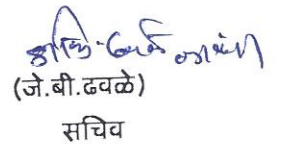 (जे.बी.ढवळे)
सचिव